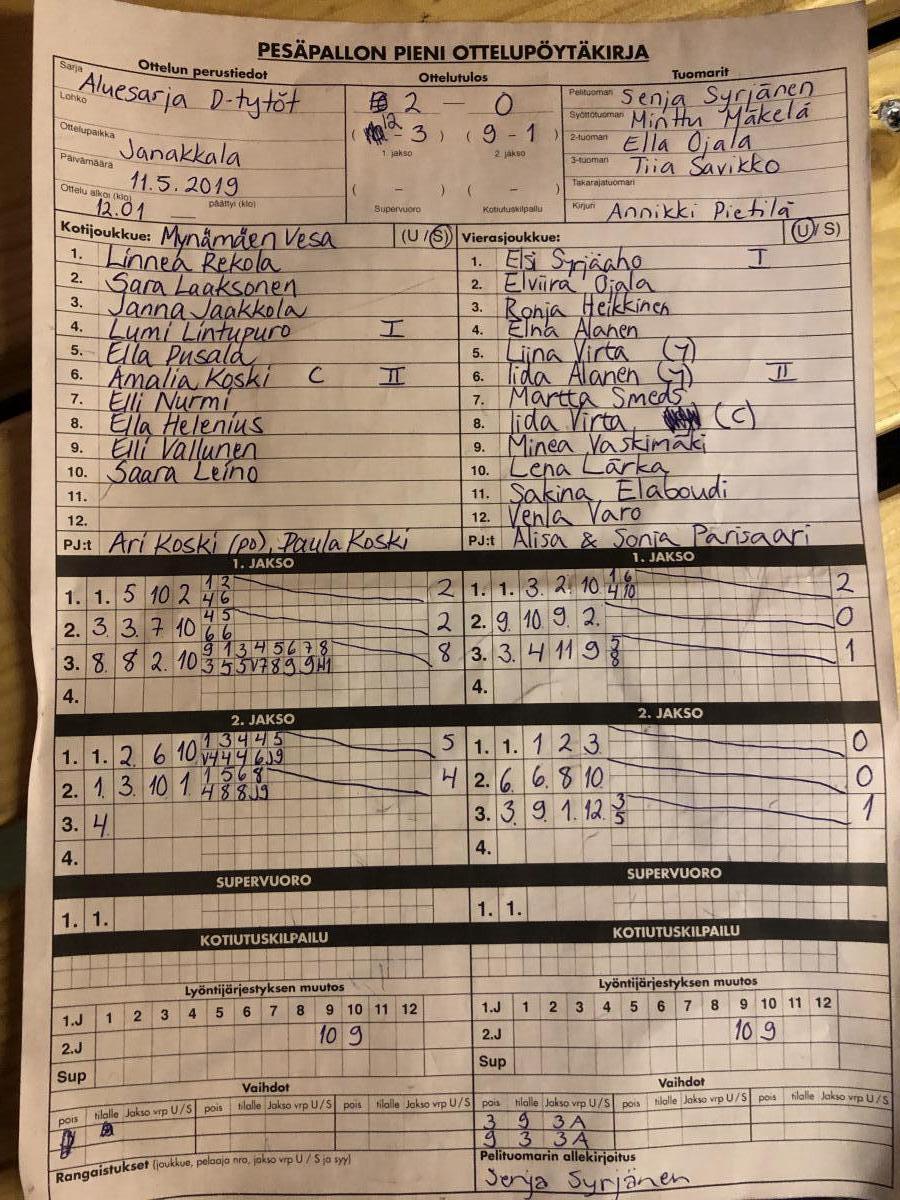 PESÄPALLON PIENI OTTELUPÖYTÄKIRJA
Ottelun perustiedot
Sarja Aluesarja D-tytöt
Lohko
Ottelupaikka Janakkala
Päivämäärä 11.5.2019
Ottelu alkoi (klo) 12.01 päättyi (klo)
Ottelutulos
2 – 0
( 12 - 3 ) ( 9 - 1 )
1. jakso 2. jakso
( - ) ( - )
Supervuoro Kotiutuskilpailu
Tuomarit
Pelituomari Senja Syrjänen
Syöttötuomari Minttu Mäkelä
2-tuomari Ella Ojala
3-tuomari Tiia Savikko
Takarajatuomari
Kirjuri Annikki Pietilä
Kotijoukkue: Mynämäen Vesa (U/S)
1. Linnea Rekola
2. Sara Laaksonen
3. Janna Jaakkola
4. Lumi Lintupuro I
5. Ella Pusala
6. Amalia Koski C II
7. Elli Nurmi
8. Ella Helenius
9. Elli Vallunen
10. Saara Leino
11.
12.
PJ:t Ari Koski (po), Paula Koski
Vierasjoukkue: (U/S)
1. Elsi Syrjäaho I
2. Elviira Ojala
3. Ronja Heikkinen
4. Elna Alanen
5. Liina Virta
6. Iida Alanen II
7. Martta Smeds
8. Iida Virta (C)
9. Minea Vaskimäki
10. Lena Lärka
11. Sakina Elaboudi
12. Venla Varo
PJ:t Alisa & Sonja Parisaari
1. JAKSO
1. 1. 5 10 2 2
2. 3. 3. 7 10 4 5 2
6 6
3. 8. 8 2. 10 9 1 3 4 5 6 7 8 8
4.
1. JAKSO
1. 1. 3. 2. 10 1 6 2
4 10
2. 9. 10 9 2. 0
3. 3. 4 11 9 1
4.
2. JAKSO
1. 1. 2. 6 10 1 3 4 4 5 5
V4 4 4 6 J9
2. 1. 3. 10 1. 1 5 6 8 4
4 8 8 J9
3. 4.
4.
2. JAKSO
1. 1. 1 2 3 0
2. 6. 6. 8 10 0
3. 3. 9. 1. 12. 3 1
5
4.
SUPERVUORO
1. 1.
SUPERVUORO
1. 1.
KOTIUTUSKILPAILU
KOTIUTUSKILPAILU
Lyöntijärjestyksen muutos
1.J 1 2 3 4 5 6 7 8 9 10 11 12
2.J 10 9
Sup
Lyöntijärjestyksen muutos
1.J 1 2 3 4 5 6 7 8 9 10 11 12
2.J 10 9
Sup
Vaihdot
pois tilalle Jakso vrp U/S pois tilalle Jakso vrp U/S pois tilalle Jakso vrp U/S
Vaihdot
pois tilalle Jakso vrp U/S pois tilalle Jakso vrp U/S pois tilalle Jakso vrp U/S
3 9 3A
9 3 3A
Rangaistukset (joukkue, pelaaja nro, jakso vrp U / S ja syy)
Pelituomarin allekirjoitus
Senja Syrjänen